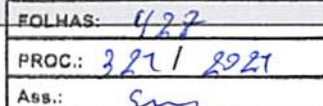 FOLHAS: 427
PROC.: 321 / 2021
Ass.: